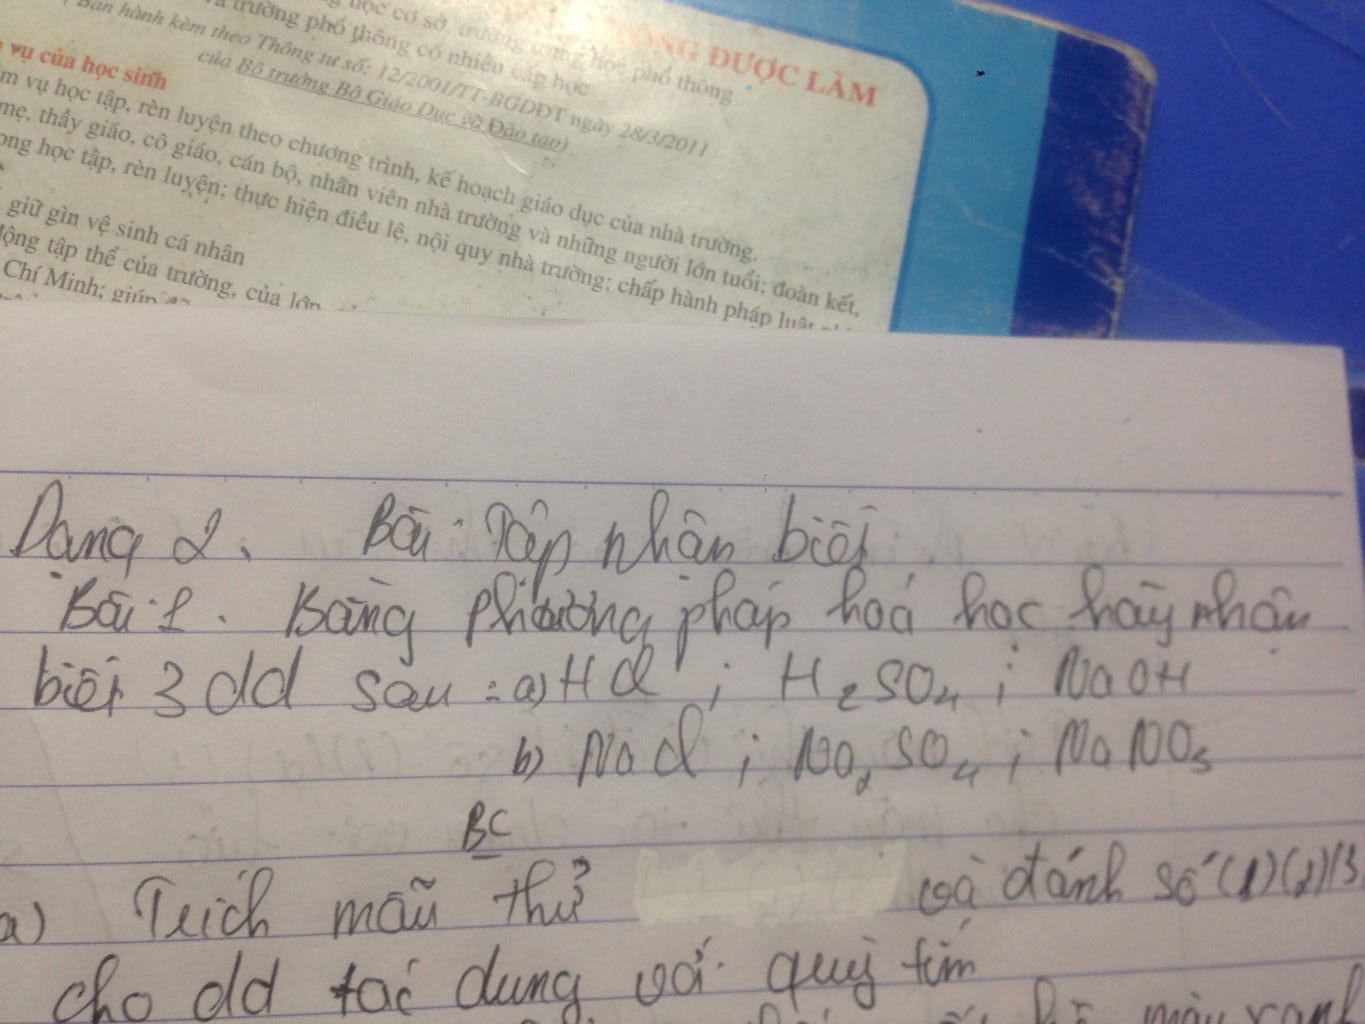 ÔNG ĐƯỢC LÀM
học cơ sở, trường trung học phổ thông
trường phổ thông có nhiều cấp học
Ban hành kèm theo Thông tư số: 12/2001/TT-BGDĐT ngày 28/3/2011
của Bộ trưởng Bộ Giáo Dục và Đào tạo)
vụ của học sinh
m vụ học tập, rèn luyện theo chương trình, kế hoạch giáo dục của nhà trường.
mẹ, thầy giáo, cô giáo, cán bộ, nhân viên nhà trường và những người lớn tuổi; đoàn kết,
ong học tập, rèn luyện; thực hiện điều lệ, nội quy nhà trường; chấp hành pháp luật
giữ gìn vệ sinh cá nhân
động tập thể của trường, của lớp
Chí Minh; giúp
Dạng 2. Bài Tập nhận biết
Bài 1. Bằng phương pháp hoá học hãy nhận
biết 3 dd sau : a) HCl ; H2SO4 ; NaOH
b) NaCl ; Na2SO4 ; NaNO3
BC
a) Trích mẫu thử và đánh số (1)(2)(3
cho dd tác dụng với quỳ tím
màu xanh